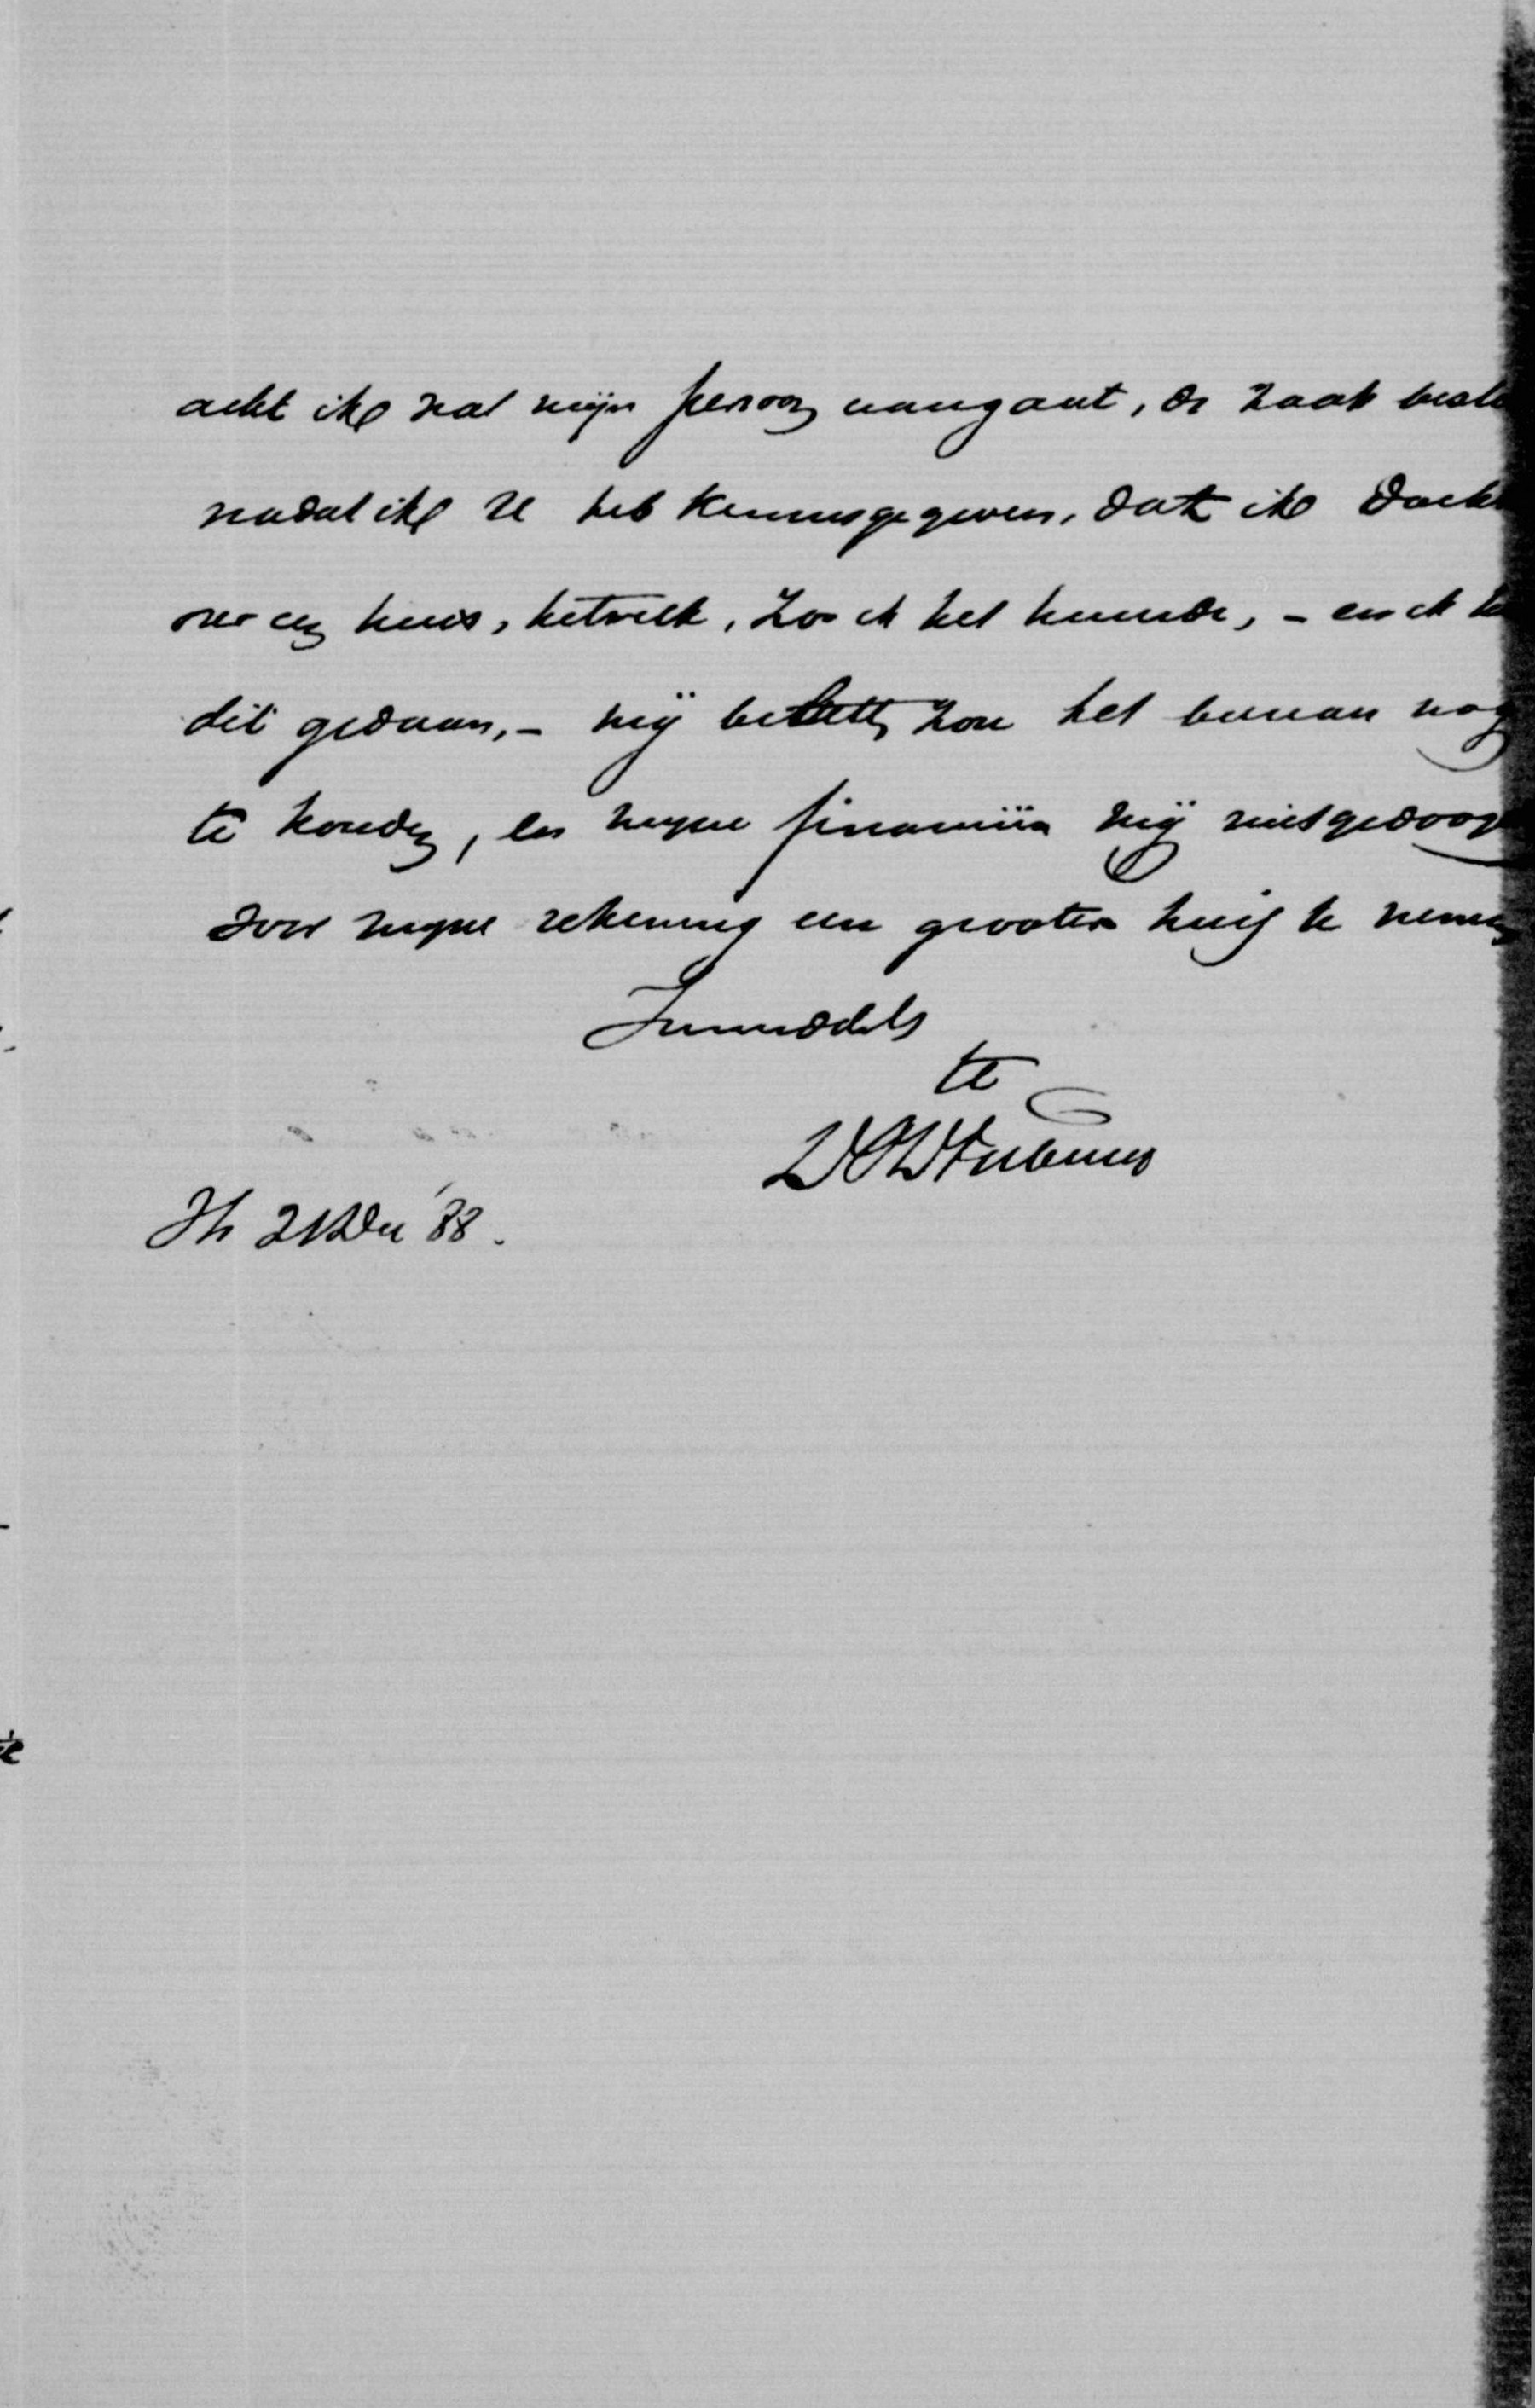 acht ik wat mijn persoon aangaat, de zaak besl
nadat ik U heb kennisgegeven, dat ik dacht
over een huis, hetwelk, zoo ik het huurde, - en ik
dit gedaan, - mij beletten zou het bureau nog
te houden, en mijne financiën mij niet gedoog
voor mijne rekening een grooter huis te nemen
Inmiddels
tt
Hr 21 Dec '88.